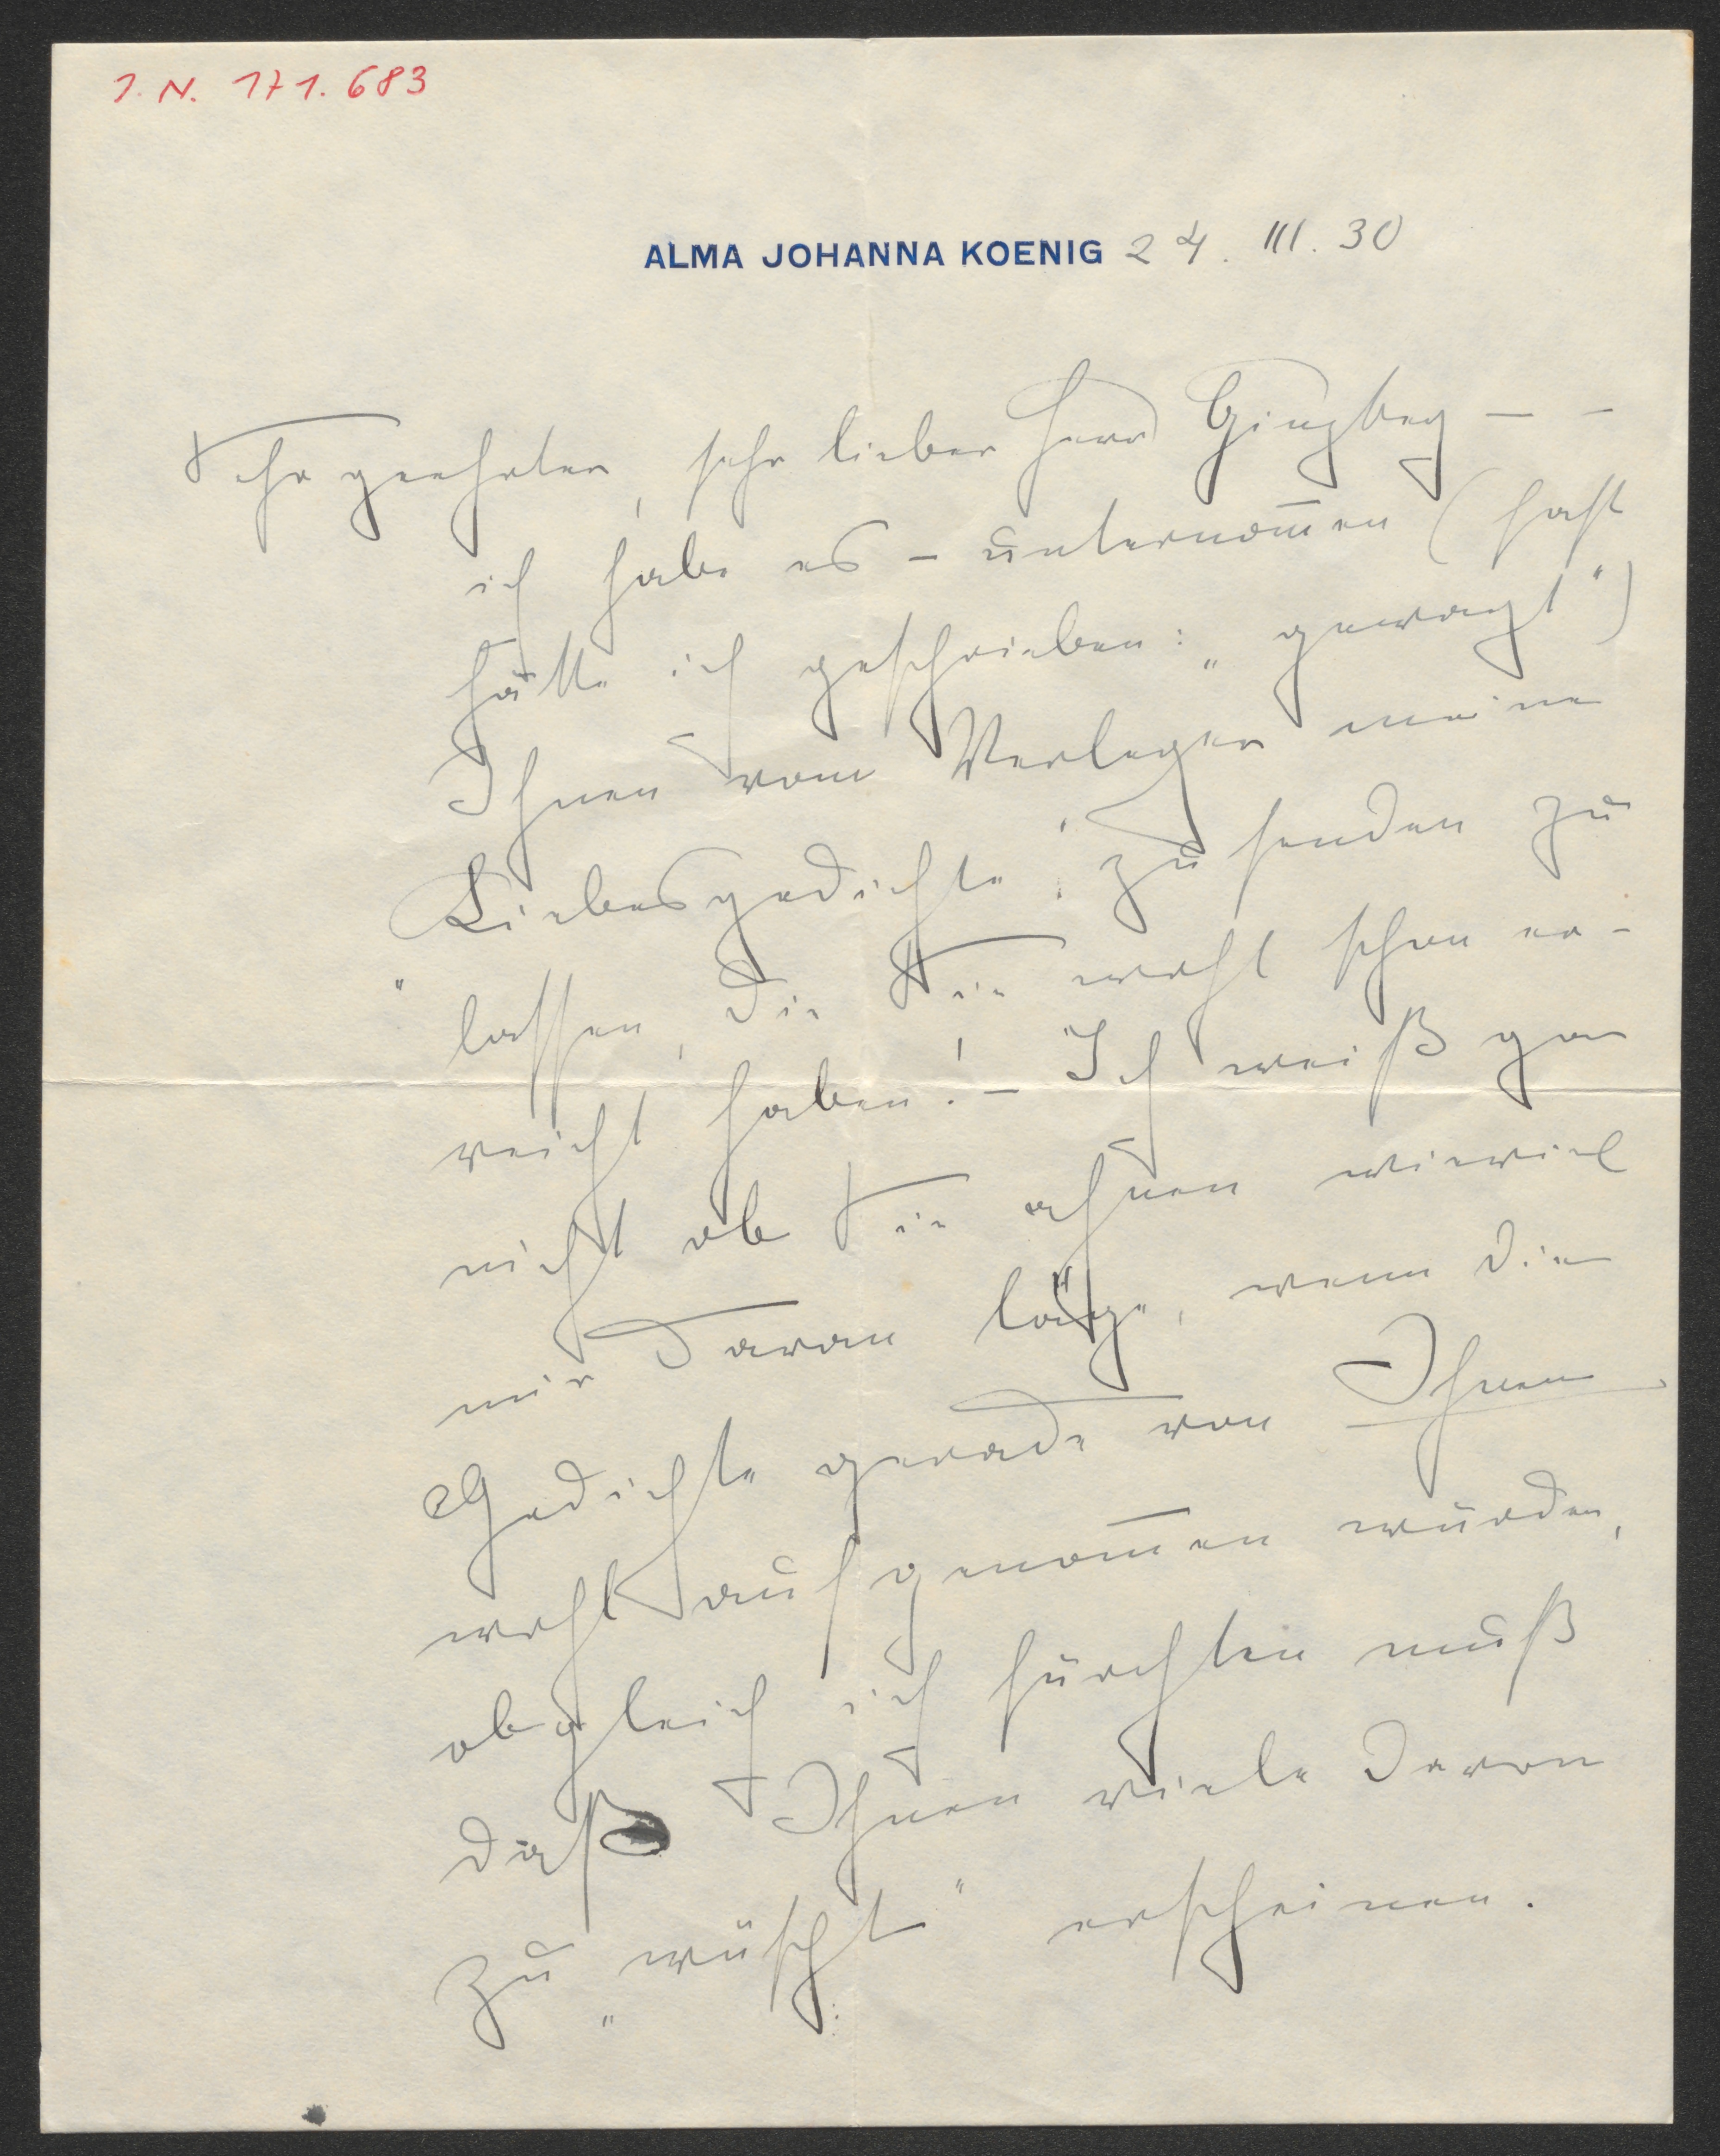 I. N. 171.683
ALMA JOHANNA KOENIG 24. III. 30
Sehr geehrter, sehr lieber Herr Ginzkey — —
ich habe es – unternom̅en (fast
hätte ich geschrieben: „gewagt")
Ihnen vom Verleger meine
„Liebesgedichte" zu senden zu
lassen, die Sie wohl schon er-
reicht haben! – Ich weiß gar
nicht ob Sie ahnen wieviel
mir daran läge, wenn die
Gedichte gerade von Ihnen
wohl aufgenom̅en würden,
obgleich ich fürchten muß
daß Ihnen viele davon
zu „wüscht" erscheinen.